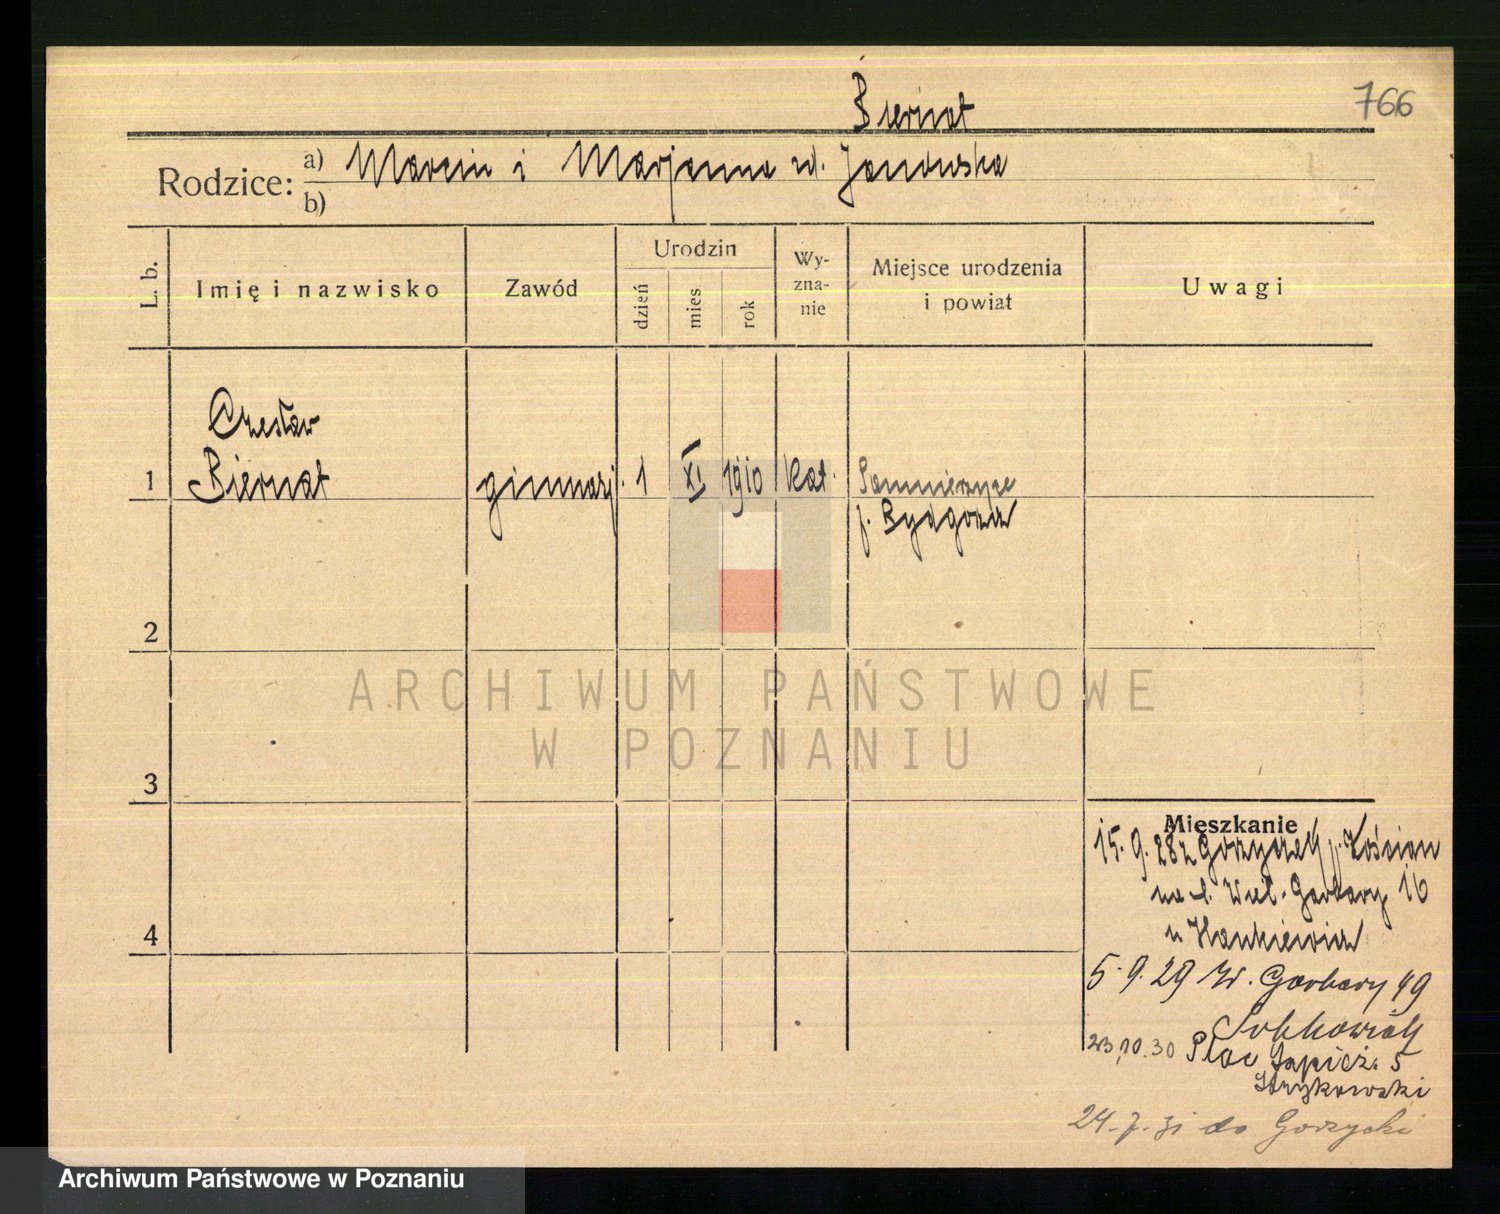 Biernat
766
Rodzice: a) Marcin i Marjanna zd. Janowska
b)
L. b.
Imię i nazwisko
Zawód
Urodzin
dzień
mies
rok
Wy-
zna-
nie
Miejsce urodzenia
i powiat
Uwagi
Czesław
1 Biernat gimnazj. 1 XI 1910 kat.
p. Bydgoszcz
2
3
4
ARCHIWUM PAŃSTWOWE
W POZNANIU
Mieszkanie
15.9.28 z Gorzyczek p. Kościan
na ul. Wiel. Garbary 16
u Hankiewicz
5.9.29 W. Garbary 49
Sobkowiak
23.10.30 Plac Sapież. 5
Strykowski
24.7.31 do Gorzyczki
Archiwum Państwowe w Poznaniu